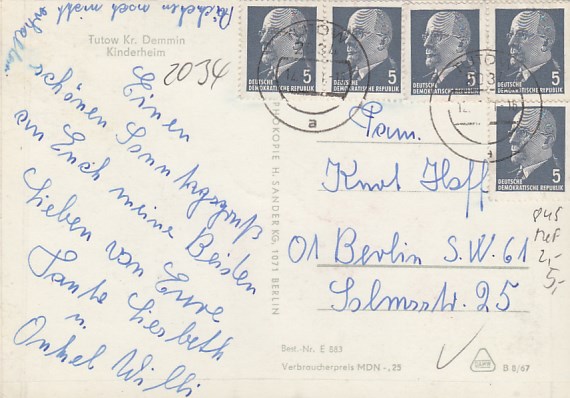 Päckchen noch nicht
erhalten.
Tutow Kr. Demmin
Kinderheim
2034
Einen
schönen Sonntagsgruß
an Euch meine Beiden
Lieben von Eure
Tante Liesbeth
u.
Onkel Willi
PHOKOPIE H. SANDER KG, 1071 BERLIN
5
DEUTSCHE
DEMOKRATISCHE REPUBLIK
5
DEUTSCHE
DEMOKRATISCHE REPUBLIK
5
DEUTSCHE
DEMOKRATISCHE REPUBLIK
5
DEUTSCHE
DEMOKRATISCHE REPUBLIK
5
DEUTSCHE
DEMOKRATISCHE REPUBLIK
TUTOW
2034
a
Fam.
Knot Hoff
01 Berlin S.W. 61
Solmsstr. 25
845
MeF
2,-
5,-
Best.-Nr. E 883
Verbraucherpreis MDN -,25
B 8/67